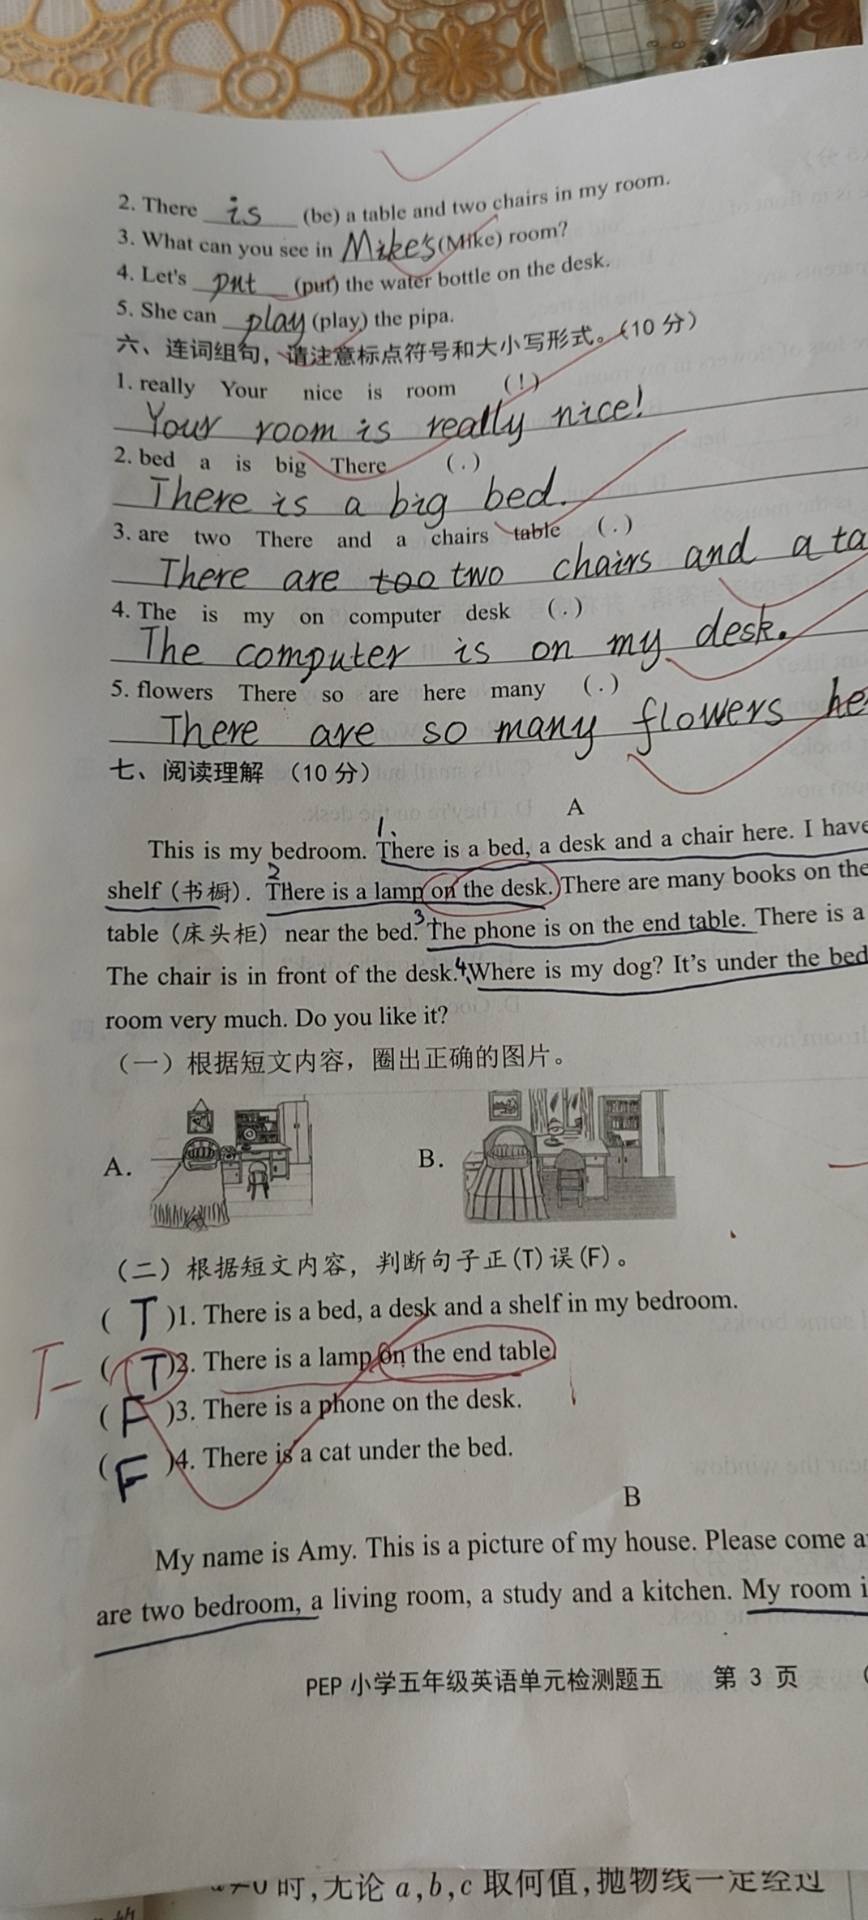 2. There is (be) a table and two chairs in my room.
3. What can you see in Mike's (Mike) room?
4. Let's put (put) the water bottle on the desk.
5. She can play (play) the pipa.
六、连词组句，请注意标点符号和大小写形式。（10 分）
1. really Your nice is room (!)
Your room is really nice!
2. bed a is big There (.)
There is a big bed.
3. are two There and a chairs table (.)
There are too two chairs and a ta
4. The is my on computer desk (.)
The computer is on my desk.
5. flowers There so are here many (.)
There are so many flowers he
七、阅读理解 （10 分）
A
1.
This is my bedroom. There is a bed, a desk and a chair here. I have
2
shelf (书橱). There is a lamp on the desk. There are many books on the
3
table (床头柜) near the bed. The phone is on the end table. There is a
The chair is in front of the desk. 4 Where is my dog? It's under the bed
room very much. Do you like it?
（一）根据短文内容，圈出正确的图片。
A. B.
（二）根据短文内容，判断句子正(T)误(F)。
( T )1. There is a bed, a desk and a shelf in my bedroom.
F ( T )2. There is a lamp on the end table.
( F )3. There is a phone on the desk.
( F )4. There is a cat under the bed.
B
My name is Amy. This is a picture of my house. Please come a
are two bedroom, a living room, a study and a kitchen. My room i
PEP 小学五年级英语单元检测题五 第 3 页
≠0 时,无论 a,b,c 取何值,抛物线一定经过